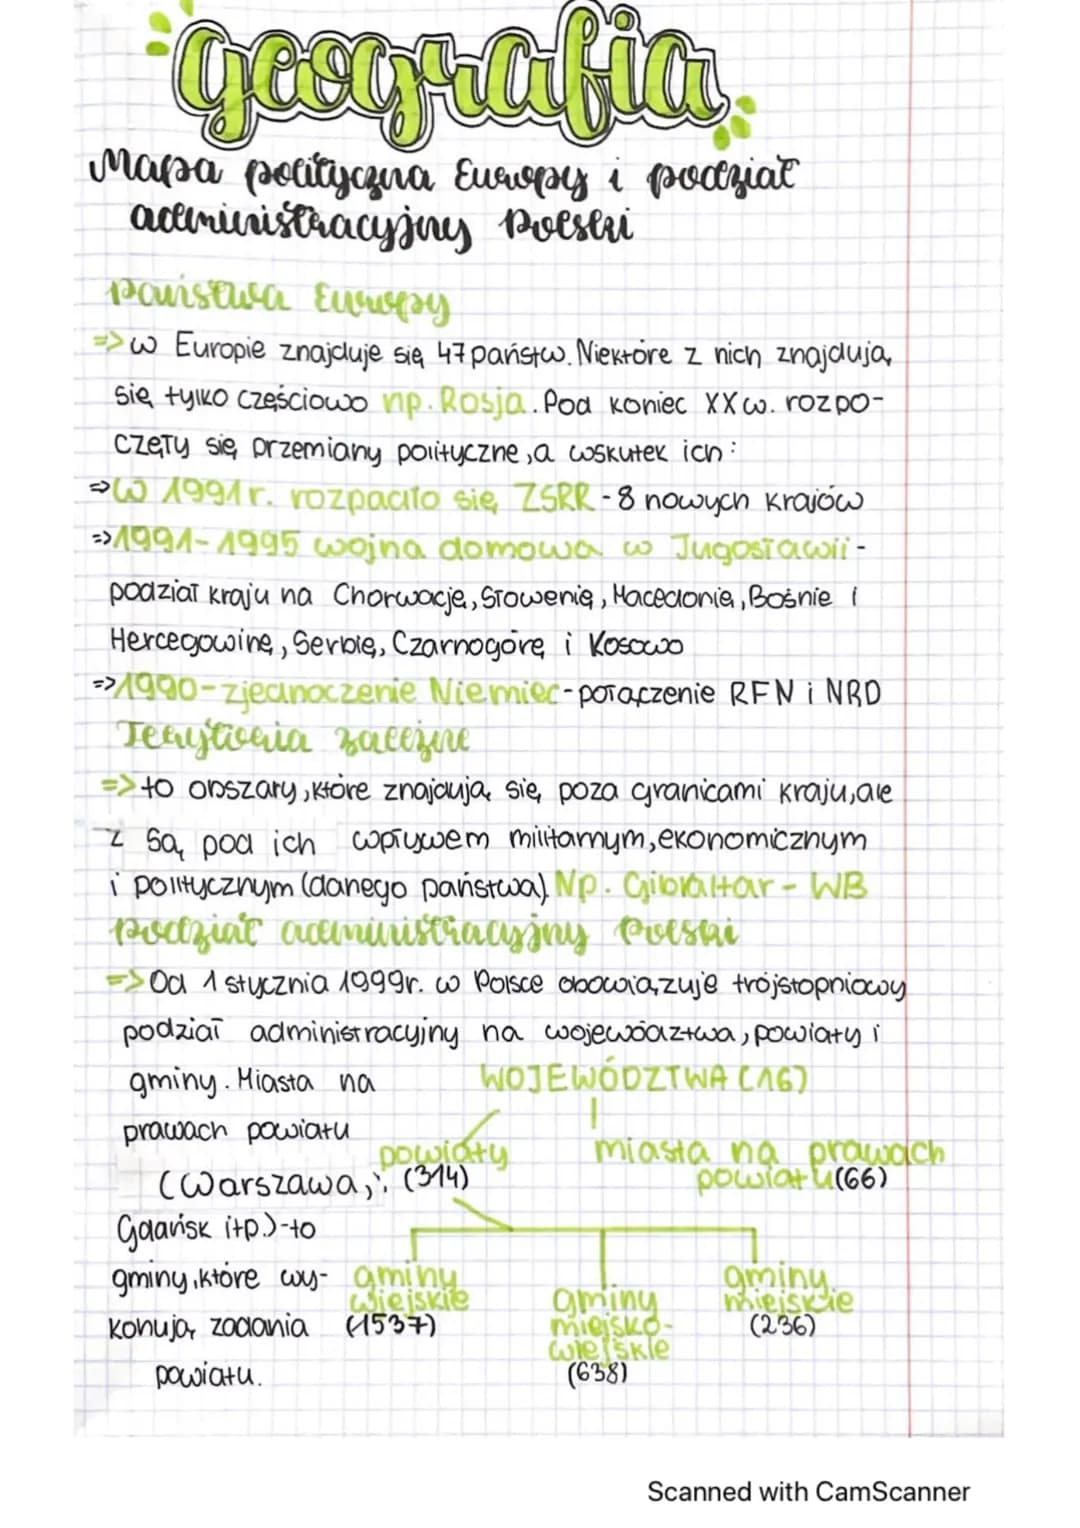 geografia
Mapa polityczna Europy i podział
administracyjny Polski
państwa Europy
=> w Europie znajduje się 47 państw. Niektóre z nich znajdują
się tylko częściowo np. Rosja. Pod koniec XX w. rozpo-
częły się przemiany polityczne, a wskutek ich:
=> W 1991 r. rozpadło się ZSRR - 8 nowych krajów
=> 1991-1995 wojna domowa w Jugosławii -
podział kraju na Chorwację, Słowenię, Macedonię, Bośnie i
Hercegowinę, Serbię, Czarnogórę i Kosowo
=> 1990 - zjednoczenie Niemiec - połączenie RFN i NRD
Terytoria zależne
=> to obszary, które znajdują się poza granicami kraju, ale
z są pod ich wpływem militarnym, ekonomicznym
i politycznym (danego państwa). Np. Gibraltar - WB
podział administracyjny Polski
=> Od 1 stycznia 1999r. w Polsce obowiązuje trójstopniowy
podział administracyjny na województwa, powiaty i
gminy. Miasta na
prawach powiatu
(Warszawa,
Gdańsk itp.) - to
gminy, które wy-
konują zadania
powiatu.
WOJEWÓDZTWA (16)
powiaty
(314)
miasta na prawach
powiatu (66)
gminy
wiejskie
(1537)
gminy
miejsko-
wiejskie
(638)
gminy
miejskie
(236)
Scanned with CamScanner